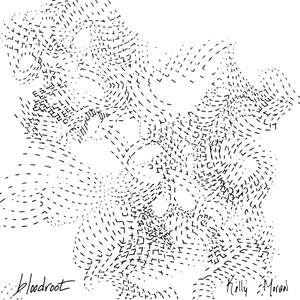 bloodroot
Kelly Moran